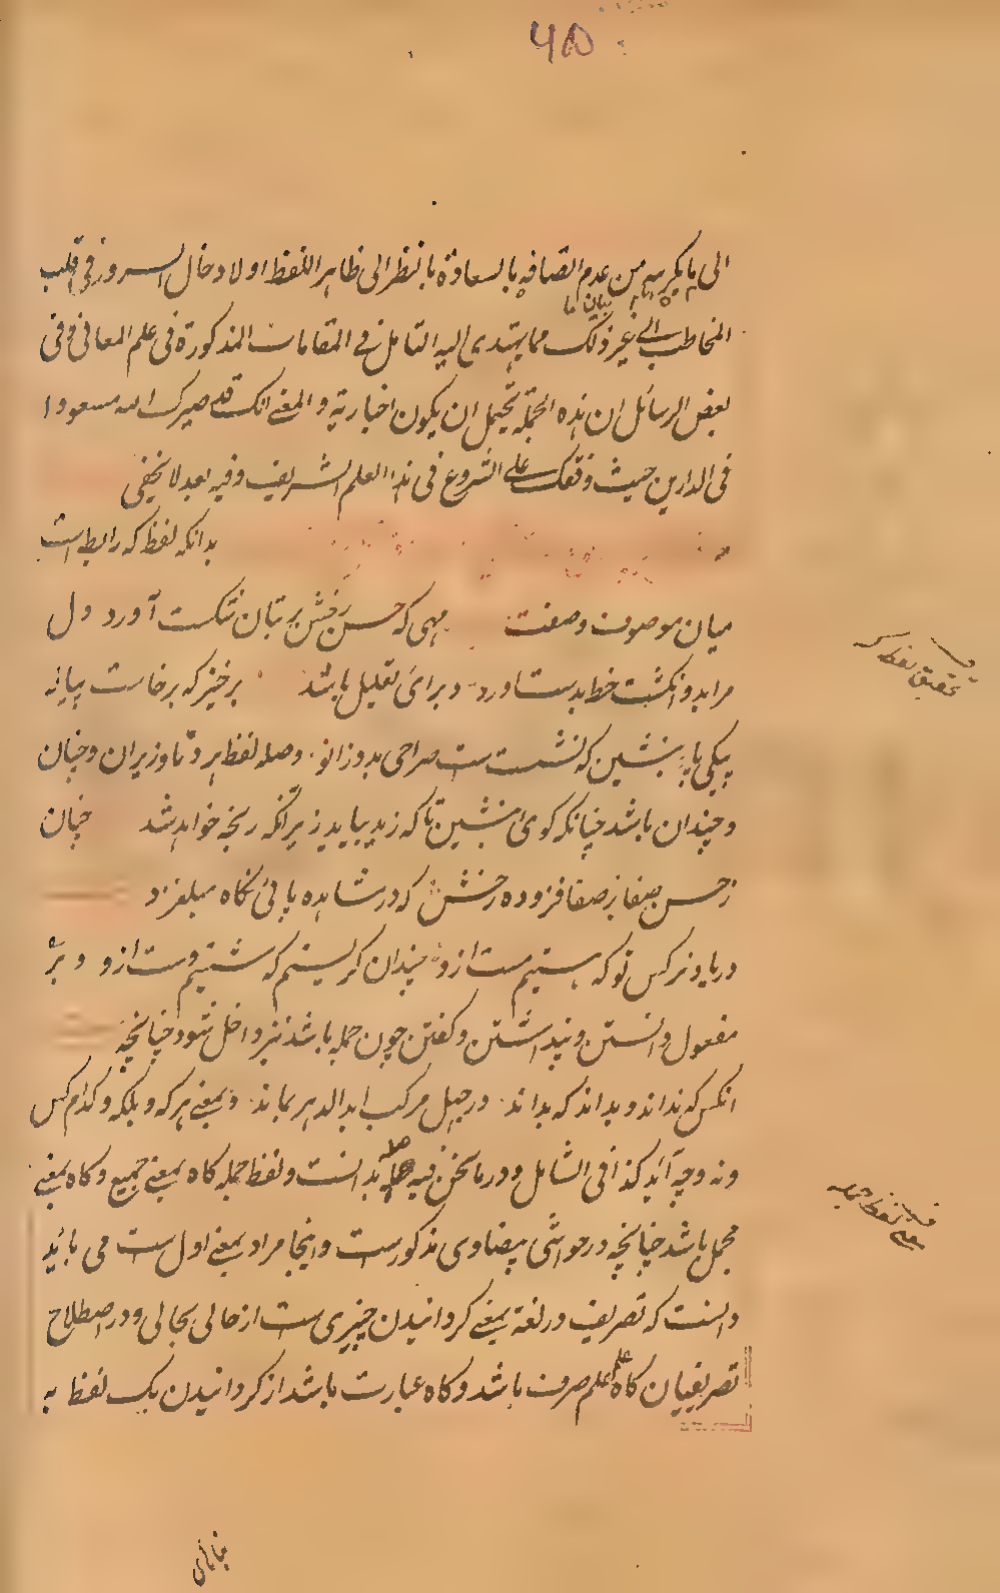 ۶۵
الی ما یکرهه من عدم اتصافه بالسعادة بالنظر الی ظاهر اللفظ او لادخال السرور فی قلب
بیان ما
المخاطب الی غیر ذلک مما یهتدی الیه التامل فی المقامات المذکورة فی علم المعانی و فی
بعض الرسائل ان هذه الجملة تحتمل ان یکون اخباریة و المعنی انک قد صیرک الله مسعودا
فی الدارین حیث وفقک علی الشروع فی هذا العلم الشریف و فیه بعد لا یخفی
بدانکه لفظ که رابط است
میان موصوف و صفت مهی که حسن رخش بر بتان شکست آورد دل
مرا بدو انگشت خط بدست آورد و برای تعلیل باشد برخیز که برخاست پیاله
بیکی پای بنشین که نشست ست صراحی بدو زانو و صله لفظ هر و تا و زیران و چنان
و چندان باشد چنانکه کوئ بنشین تا که زید بیاید زیرانکه رنجه خواهد شد چنان
ز حسن صفا بر صفا فزوده رخش که در مشاهده پائ نکاه میلغزد
در یاد نرکس تو که هستیم مست ازو چندان کریستم که شستیم دست ازو و بر
مفعول دانستن و پنداشتن و کفتن چون جمله باشد نیز داخل شود چنانچه
انکس که نداند و بداند که بداند در جهل مرکب ابد الدهر بماند و بمعنی هر که و بلکه و کدام کس
و نه و چه آید کذا فی الشامل و در ما نحن فیه صله بدانست و لفظ جمله کاه بمعنی جمیع و کاه بمعنی
مجمل باشد چنانچه در حواشی بیضاوی مذکورست و اینجا مراد بمعنی اول ست می باید
دانست که تصریف در لغة بمعنی کردانیدن چیزی ست از حالی بحالی و در اصطلاح
تصریفیان کاه علم علم صرف باشد و کاه عبارت باشد از کردانیدن یک لفظ به
تحقیق لفظ که
معنی لفظ جمله